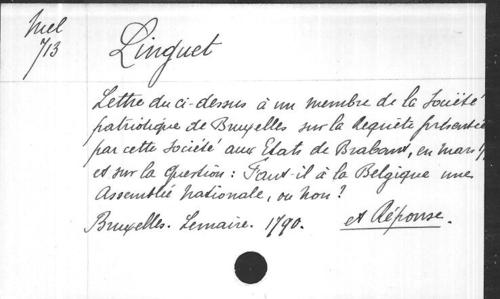 Mel
713
Linguet
Lettre du ci-dessus à un membre de la Société
patriotique de Bruxelles sur la Requête présentée
par cette Société aux Etats de Brabant, en mars
et sur la question : Faut-il à la Belgique une
Assemblée Nationale, ou non ?
Bruxelles. Lemaire. 1790. et Réponse.